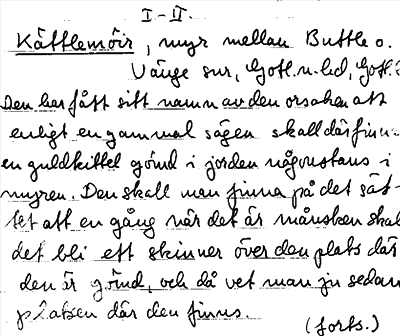 I-II.
Kättlemöir, myr mellan Buttle o.
Vänge snr, Gotl. n. hd, Gotl.
Den har fått sitt namn av den orsaken att
enligt en gammal sägen skall där finn-
en guldkittel gömd i jorden någonstans i
myren. Den skall man finna på det sät-
tet att en gång när det är månsken skall
det bli ett skinner över den plats där
den är gömd, och då vet man ju sedan
platsen där den finns.
(forts.)